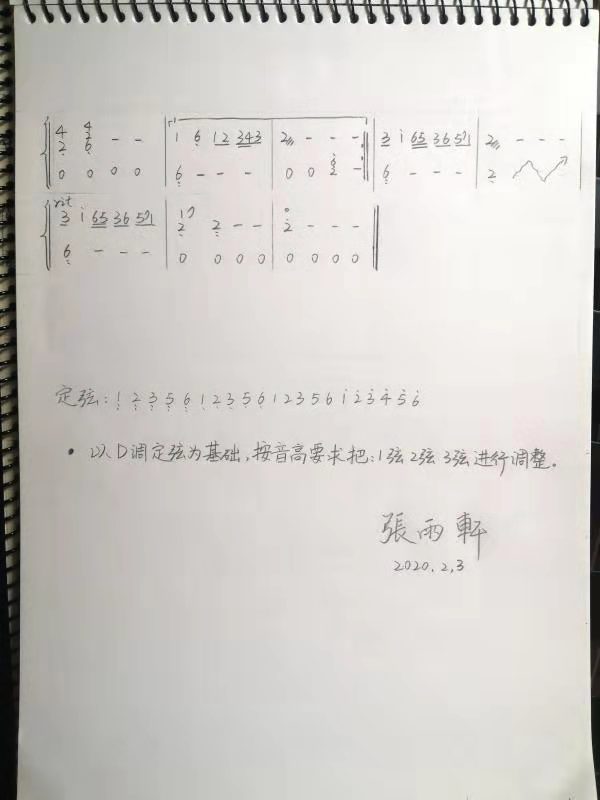 4 4 - - | 1 6 12 343 | 2 - - - | 3 i 65 36 571 | 2 - - -
2 6
0 0 0 0 | 6 - - - | 0 0 2 - | 6 - - - | 2
rit
3 i 65 36 571 | 2 2 - - | 2 - - -
6 - - - | 0 0 0 0 | 0 0 0 0
定弦：1 2 3 5 6 1 2 3 5 6 1 2 3 5 6 1 2 3 4 5 6
• 以D调定弦为基础，按音高要求把：1弦2弦3弦进行调整。
張雨軒
2020.2.3